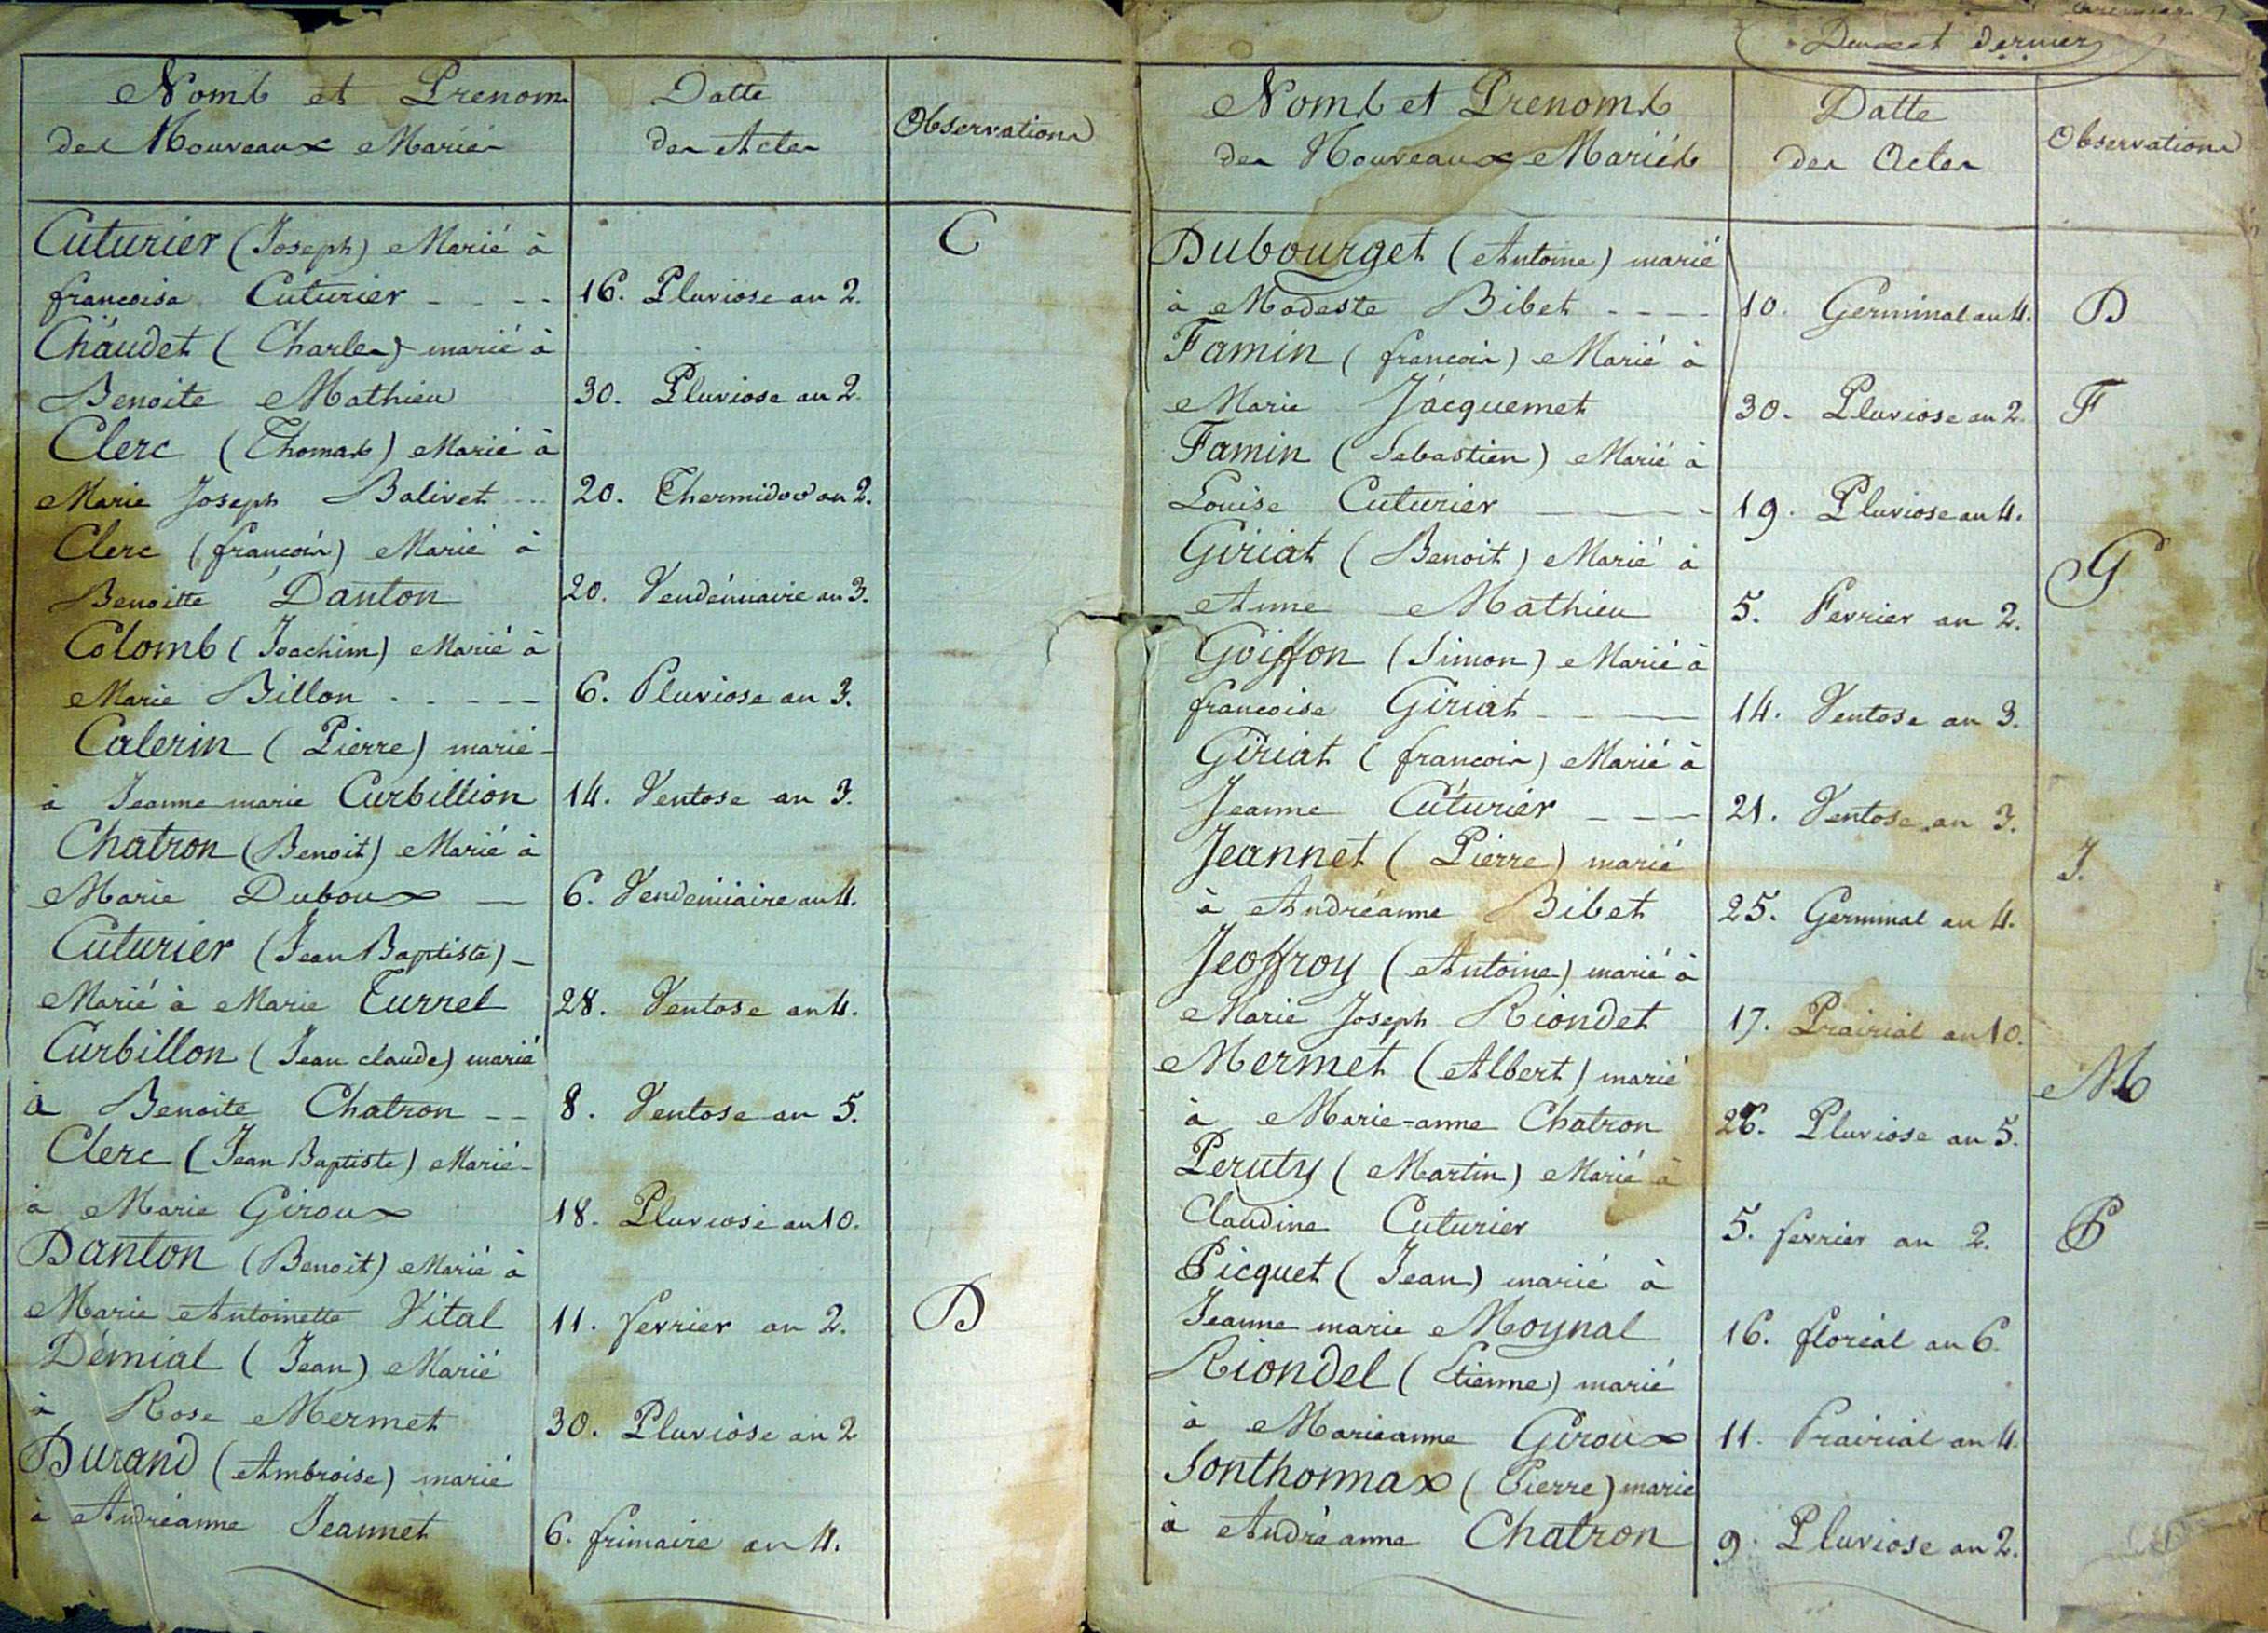 Noms et Prenom
des Nouveaux Mariés
Datte
des Actes
Observations
Cuturier (Joseph) Marié à
C
francoise Cuturier - - - - 16. Pluviose an 2.
Chaudet (Charles) marié à
Benoite Mathieu 30. Pluviose an 2.
Clerc (Thomas) Marié à
Marie Joseph Balivet ... 20. Thermidor an 2.
Clerc (francois) Marié à
Benoitte Danton 20. Vendémiaire an 3.
Colomb (Joachim) Marié à
Marie Billon - - - - - 6. Pluviose an 3.
Calerin (Pierre) marié -
à Jeanne marie Curbillion 14. Ventose an 3.
Chatron (Benoit) Marié à
Marie Duboux - 6. Vendemiaire an 4.
Cuturier (Jean Baptiste) -
Marié à Marie Turrel 28. Ventose an 4.
Curbillon (Jean claude) marié
à Benoite Chatron - - 8. Ventose an 5.
Clerc (Jean Baptiste) Marié -
à Marie Giroux 18. Pluviose an 10.
Danton (Benoit) Marié à
Marie Antoinette Vital 11. fevrier an 2. D
Démial (Jean) Marié
à Rose Mermet 30. Pluviose an 2
Durand (Ambroise) marié
à Andréanne Jeannet 6. frimaire an 4.
Deux et dernier
Noms et Prenoms
des Nouveaux Mariés
Datte
des Actes
Observations
Dubourget (Antoine) marié
à Modeste Bibet - - - - 10. Germinal an 4. D
Famin (francois) Marié à
Marie Jacquemet 30. Pluviose an 2. F
Famin (Sebastien) Marié à
Louise Cuturier - - - - 19. Pluviose an 4.
Giriat (Benoit) Marié à
G
Anne Mathieu 5. Fevrier an 2.
Goiffon (Simon) Marié à
francoise Giriat - - - 14. Ventose an 3.
Giriat (francois) Marié à
Jeanne Cuturier - - - 21. Ventose an 3.
Jeannet (Pierre) marié
J.
à Andréanne Bibet 25. Germinal an 4.
Jeoffroy (Antoine) marié à
Marie Joseph Riondet 17. Prairial an 10.
Mermet (Albert) marié
M
à Marie-anne Chatron 26. Pluviose an 5.
Peruty (Martin) Marié à
Claudine Cuturier 5. fevrier an 2. P
Picquet (Jean) marié à
Jeanne marie Moynal 16. floréal an 6.
Riondel (Etienne) marié
à Marieanne Giroux 11. Prairial an 4.
Sonthonnax (Pierre) marié
à Andréanne Chatron 9. Pluviose an 2.